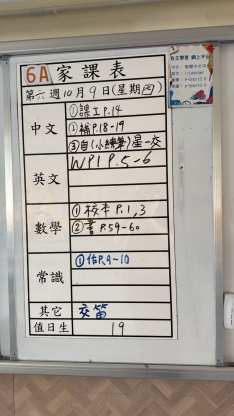 6A 家課表
第六週10月9日(星期四)
中文
①課工P.14
②補P.18-19
③自(小練筆)星一交
英文
WP1 P.5-6
數學
①校本P.1,3
②書P.59-60
常識
①作P.9-10
其它
交笛
值日生
19
自主學習 網上平台